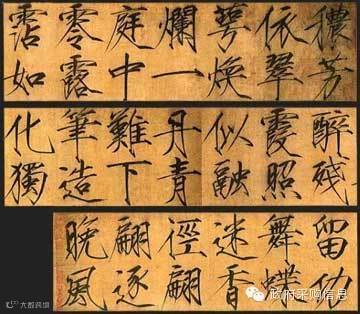 穠芳
依翠
萼煥
爛一
庭中
零露
霑如
醉殘
霞照
似融
丹青
難下
筆造
化獨
留功
舞蝶
迷香
徑翩
翩逐
晚風
大数跨境
政府采购信息